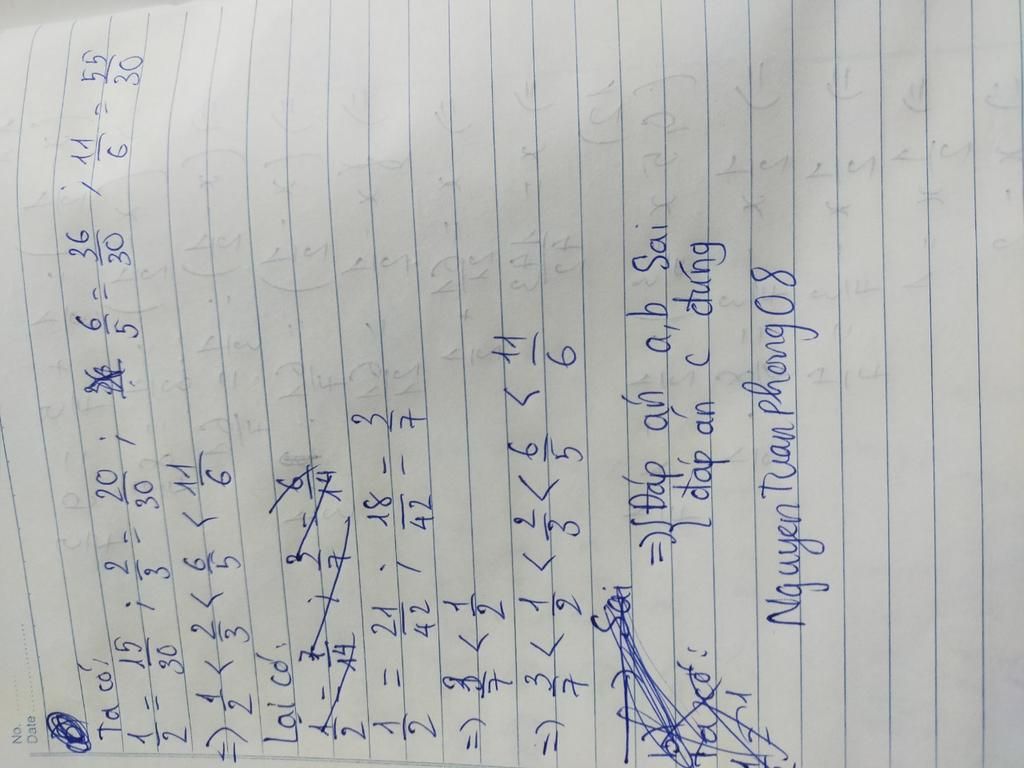 No.
Date
Ta có:
1/2 = 15/30 ; 2/3 = 20/30 ; 6/5 = 36/30 ; 11/6 = 55/30
=> 1/2 < 2/3 < 6/5 < 11/6
Lại có:
1/2 = 7/14 ; 3/7 = 6/14
1/2 = 21/42 ; 18/42 = 3/7
=> 3/7 < 1/2
=> 3/7 < 1/2 < 2/3 < 6/5 < 11/6
Sai
=> { Đáp án a, b Sai
đáp án c đúng
Ta có:
Nguyen Tuan phong 08